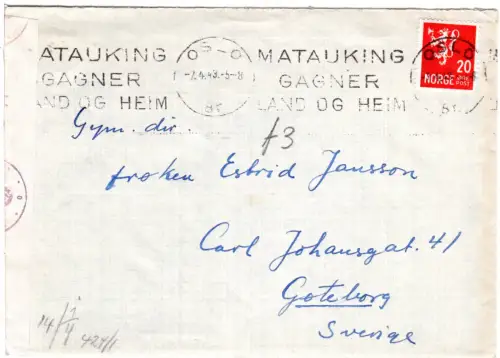 ATAUKING
GAGNER
LAND OG HEIM
OSLO
-7.4.43.-5-8
Br
MATAUKING
GAGNER
LAND OG HEIM
OSLO
NORGE
20
POST
Gym. dir.
f3
froken Estrid Jansson
Carl Johansgat. 41
Goteborg
Sverige